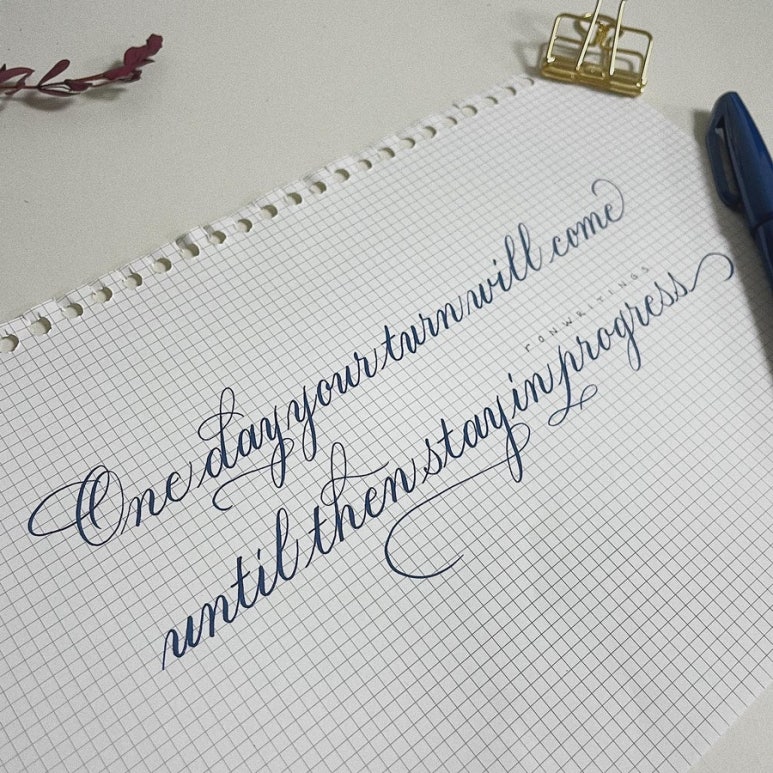 One day your turn will come
ronwritings
until then stay in progress